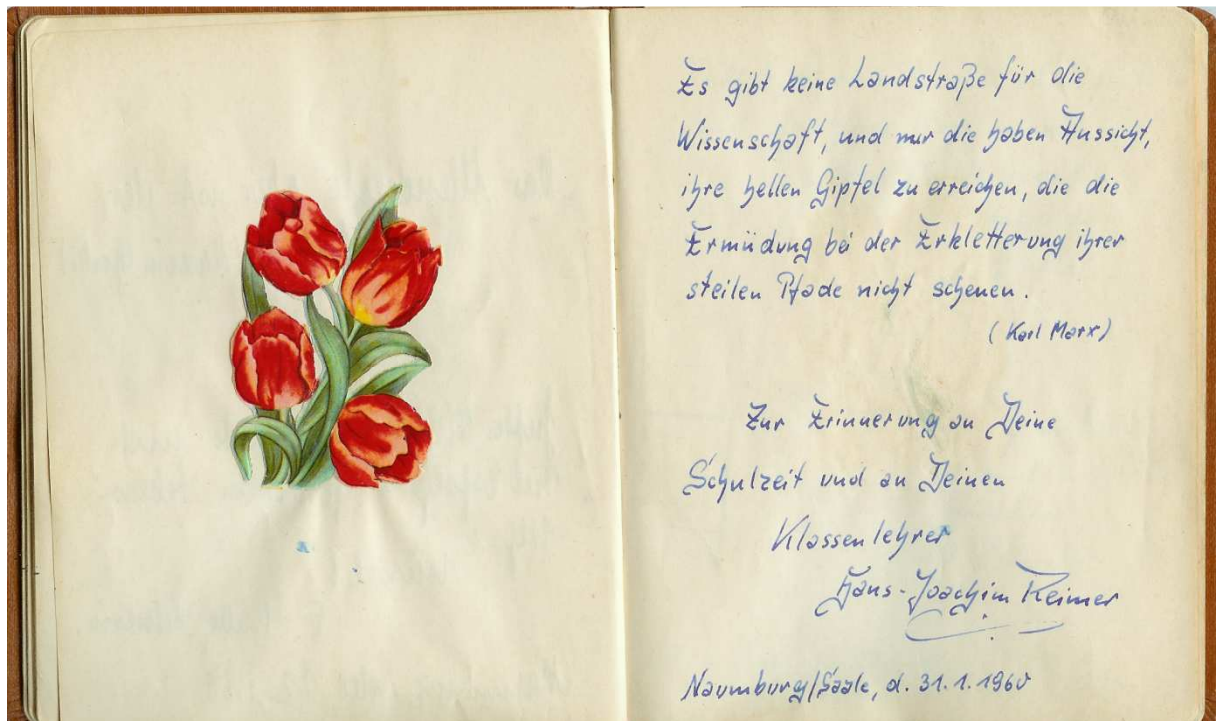 Es gibt keine Landstraße für die
Wissenschaft, und nur die haben Aussicht,
ihre hellen Gipfel zu erreichen, die die
Ermüdung bei der Erkletterung ihrer
steilen Pfade nicht scheuen.
(Karl Marx)
Zur Erinnerung an Deine
Schulzeit und an Deinen
Klassenlehrer
Hans-Joachim Reimer
Naumburg/Saale, d. 31.1.1960